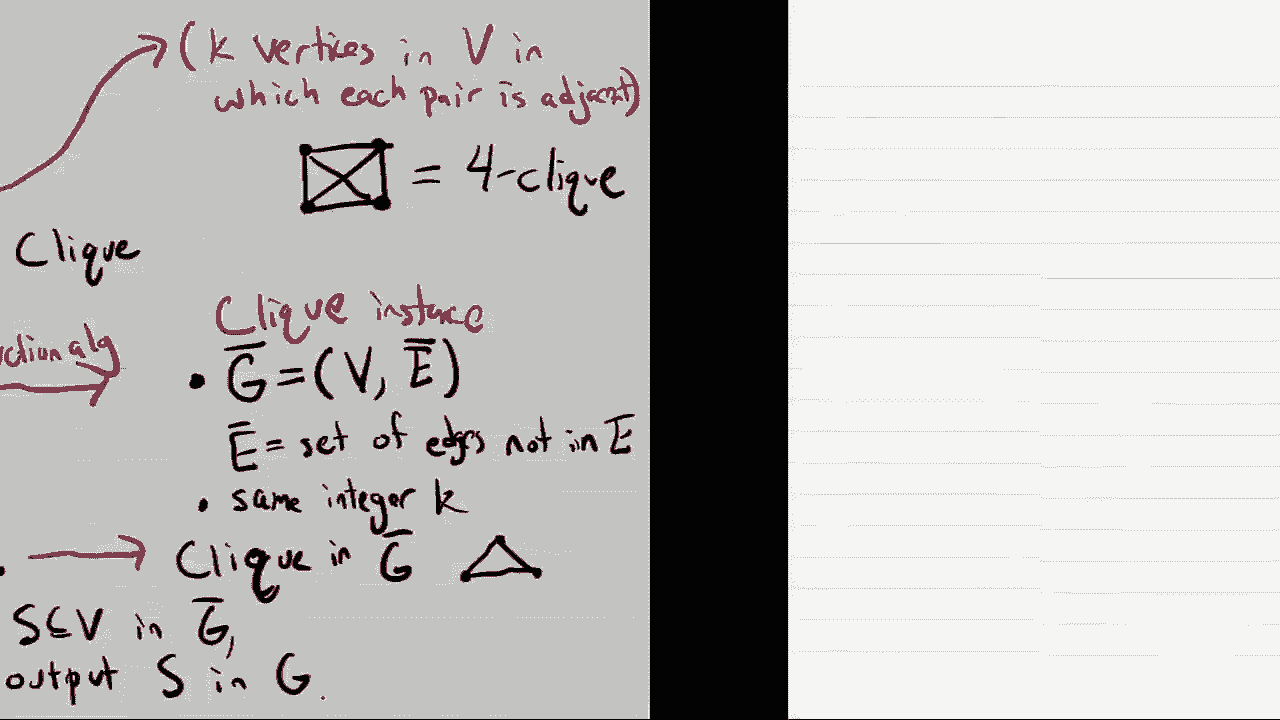 (k vertices in V in
which each pair is adjacent)
= 4-clique
Clique
Clique instance
alg
• G̅ = (V, E̅)
E̅ = set of edges not in E
• same integer k
Clique in G̅
S⊆V in G̅,
output S in G.